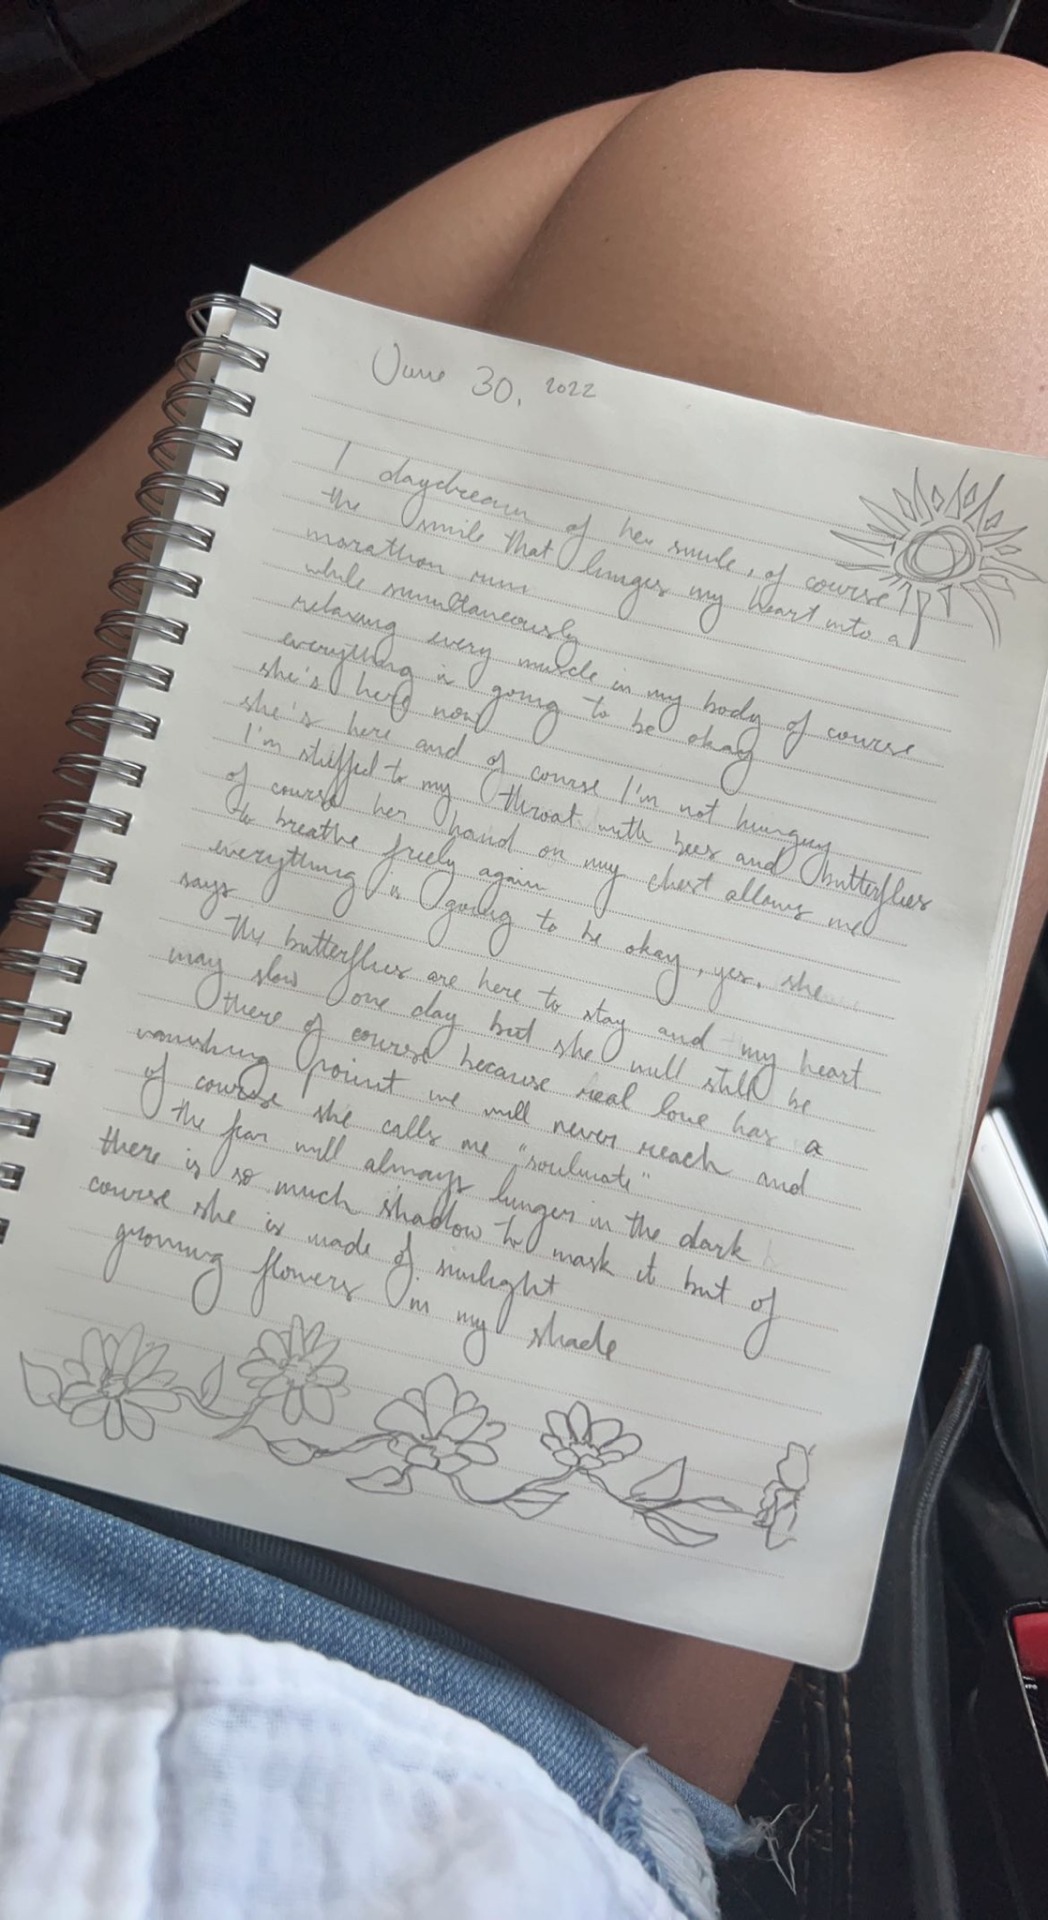 June 30, 2022
I daydream of her smile, of course
the smile that lunges my heart into a
marathon run
while simultaneously
relaxing every muscle in my body of course
everything is going to be okay
she's here now
she's here and of course I'm not hungry
I'm stuffed to my throat with bees and butterflies
of course her hand on my chest allows me
to breathe freely again
everything is going to be okay, yes, she
says
the butterflies are here to stay and my heart
may slow one day but she will still be
there of course because real love has a
vanishing point we will never reach and
of course she calls me "soulmate"
the fear will always linger in the dark
there is so much shadow to mask it but of
course she is made of sunlight
growing flowers in my shade